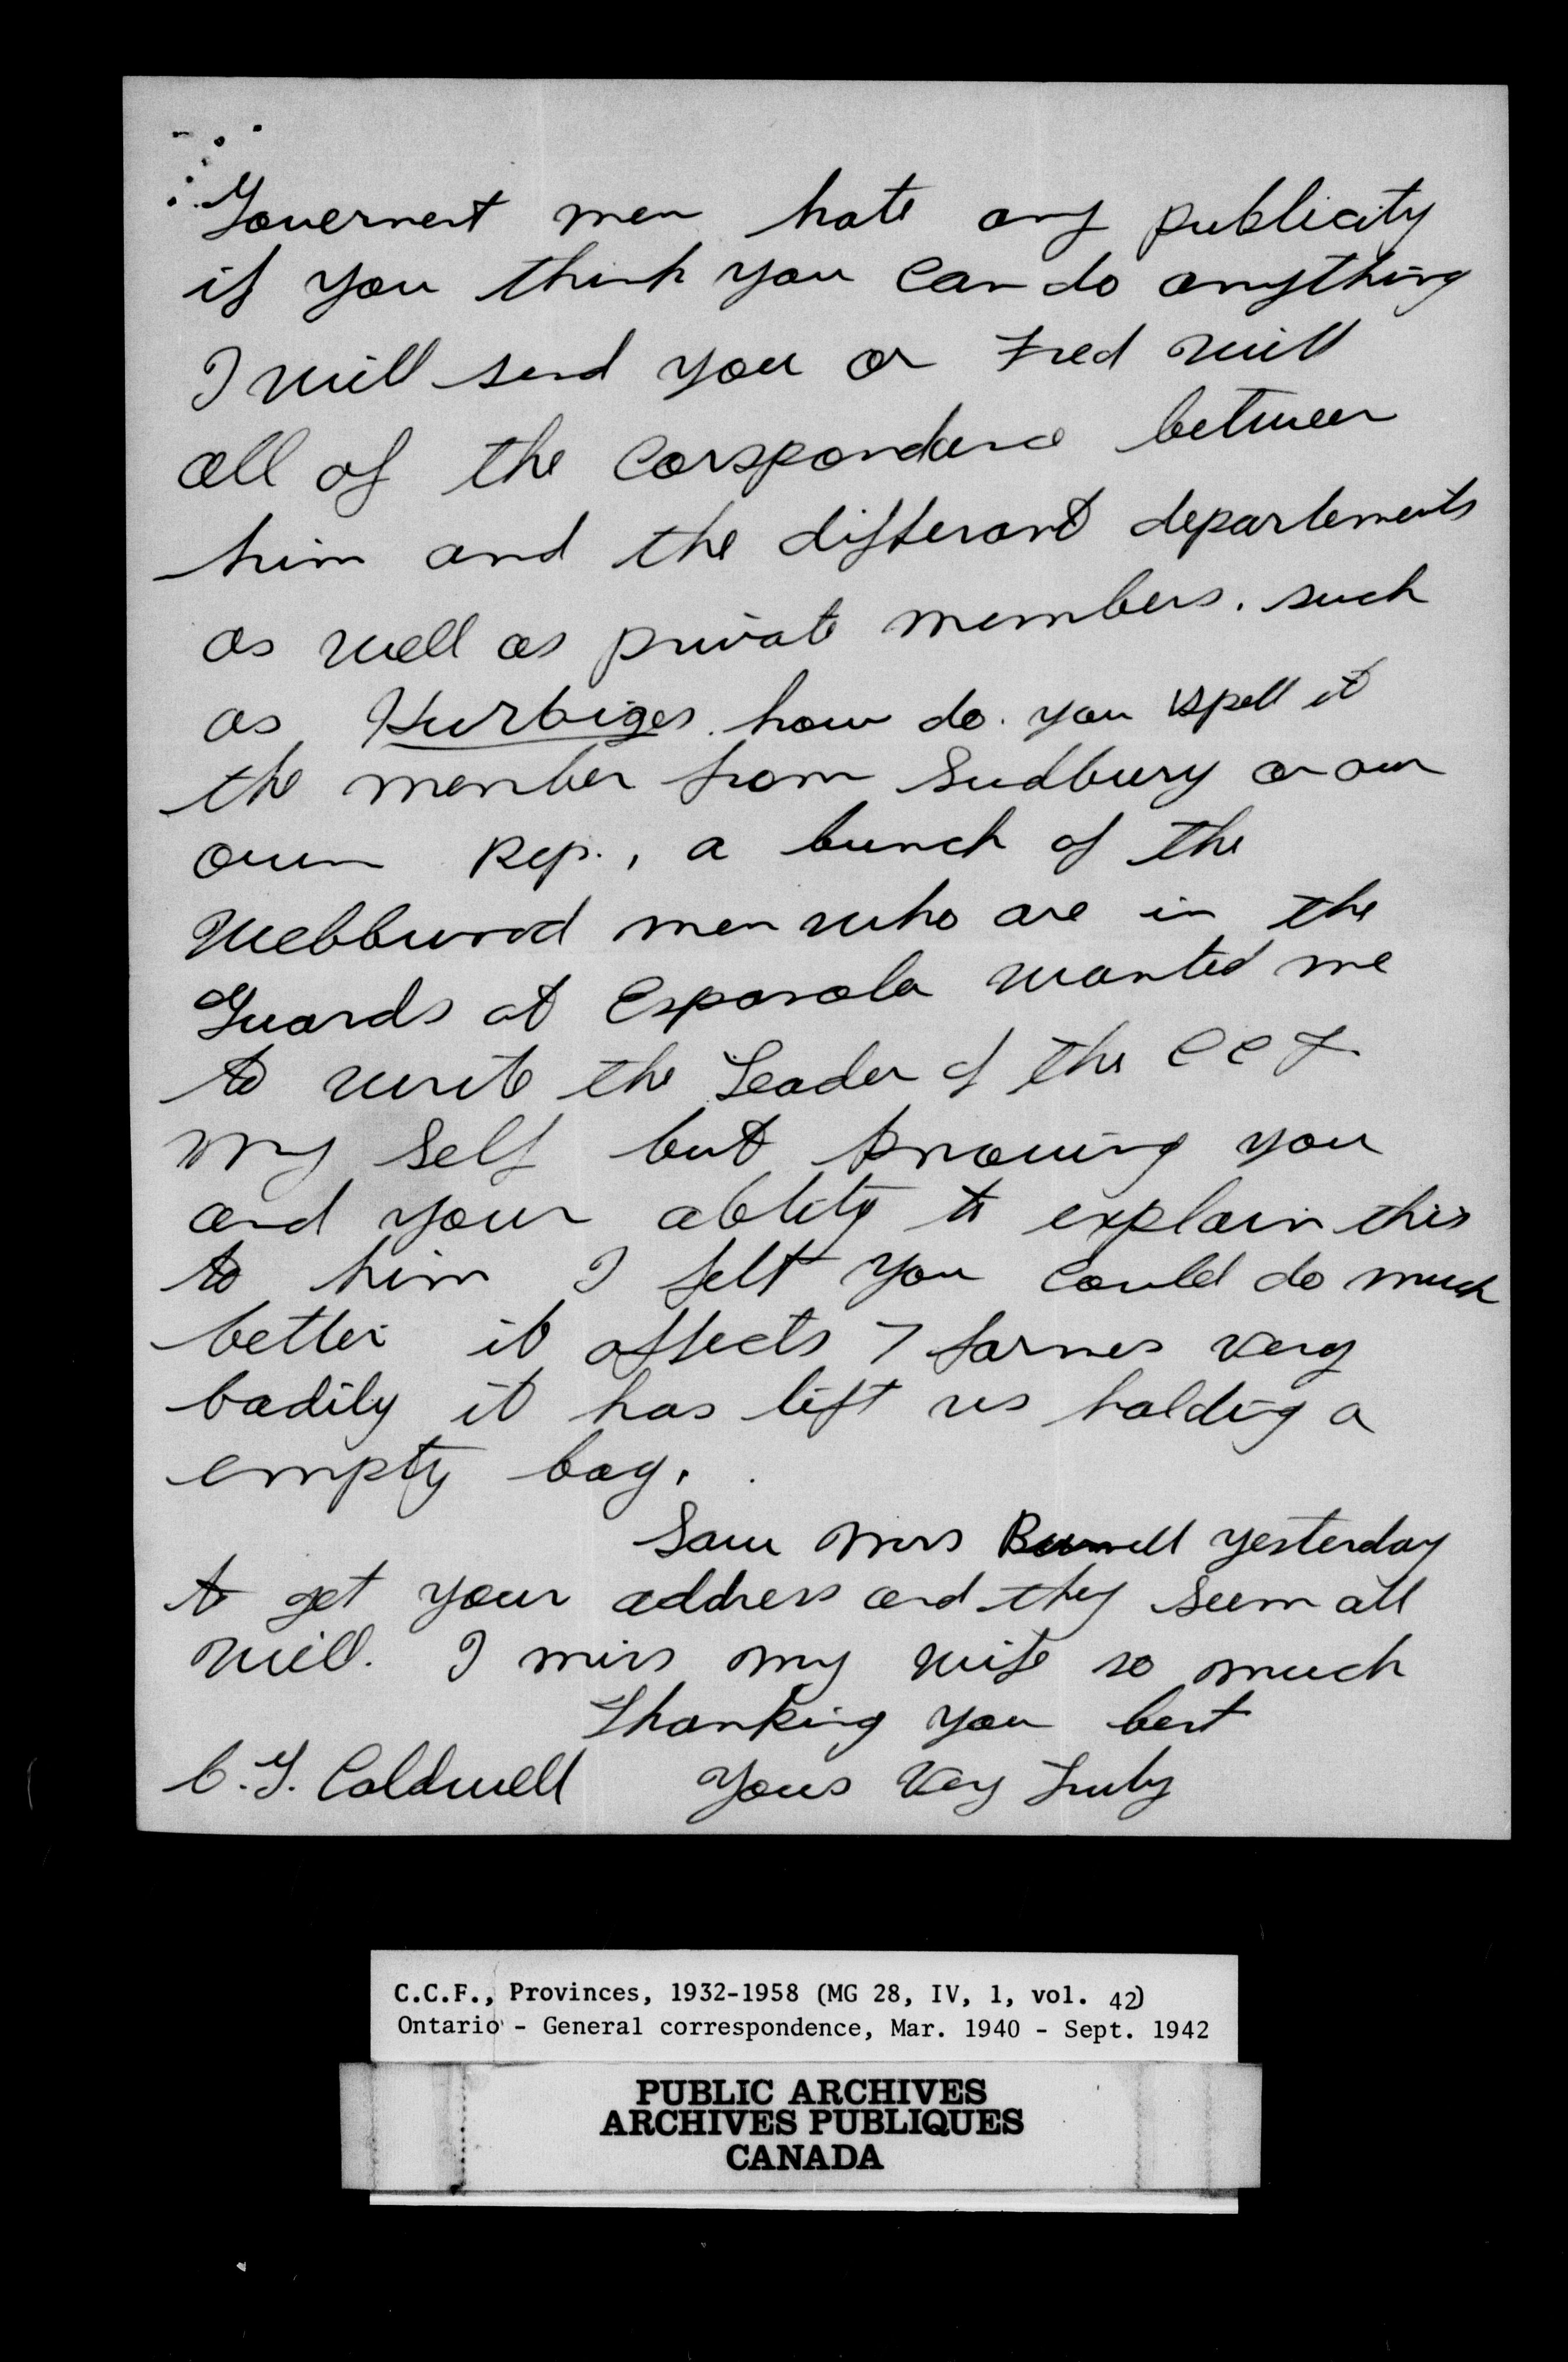 Goverment men hate any publicity
if you think you can do anything
I will send you or Fred will
all of the Corspondence between
him and the differant departements
as well as private members. such
as Hurbiges. how do you spell it
the member from Sudbury or our
own Rep., a bunch of the
Webbwood men who are in the
Guards at Espanola wanted me
to write the Leader of the CCF
my self but knowing you
and your ablity to explain this
to him I felt you could do much
better it affects 7 farmes very
badily it has left us holding a
empty bag.
Saw Mrs Burwell yesterday
to get your address and they seem all
well. I miss my wife so much
Thanking you best
C.G. Coldwell Yours Very Truly
C.C.F., Provinces, 1932-1958 (MG 28, IV, 1, vol. 42)
Ontario - General correspondence, Mar. 1940 - Sept. 1942
PUBLIC ARCHIVES
ARCHIVES PUBLIQUES
CANADA